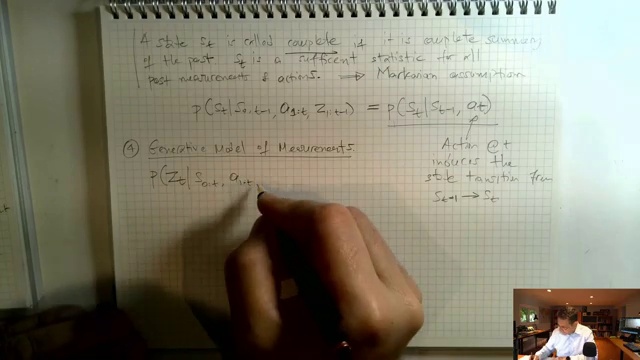 A state St is called complete if it is complete summary
of the past St is a sufficent statistic for all
past measurements & actions. → Markovian assumption
p(St | S0:t-1, a1:t, Z1:t-1) = p(St | St-1, at)
Action @ t
induces the
state transition from
St-1 → St
④ Generative Model of Measurements
p(Zt | S0:t, a1:t,